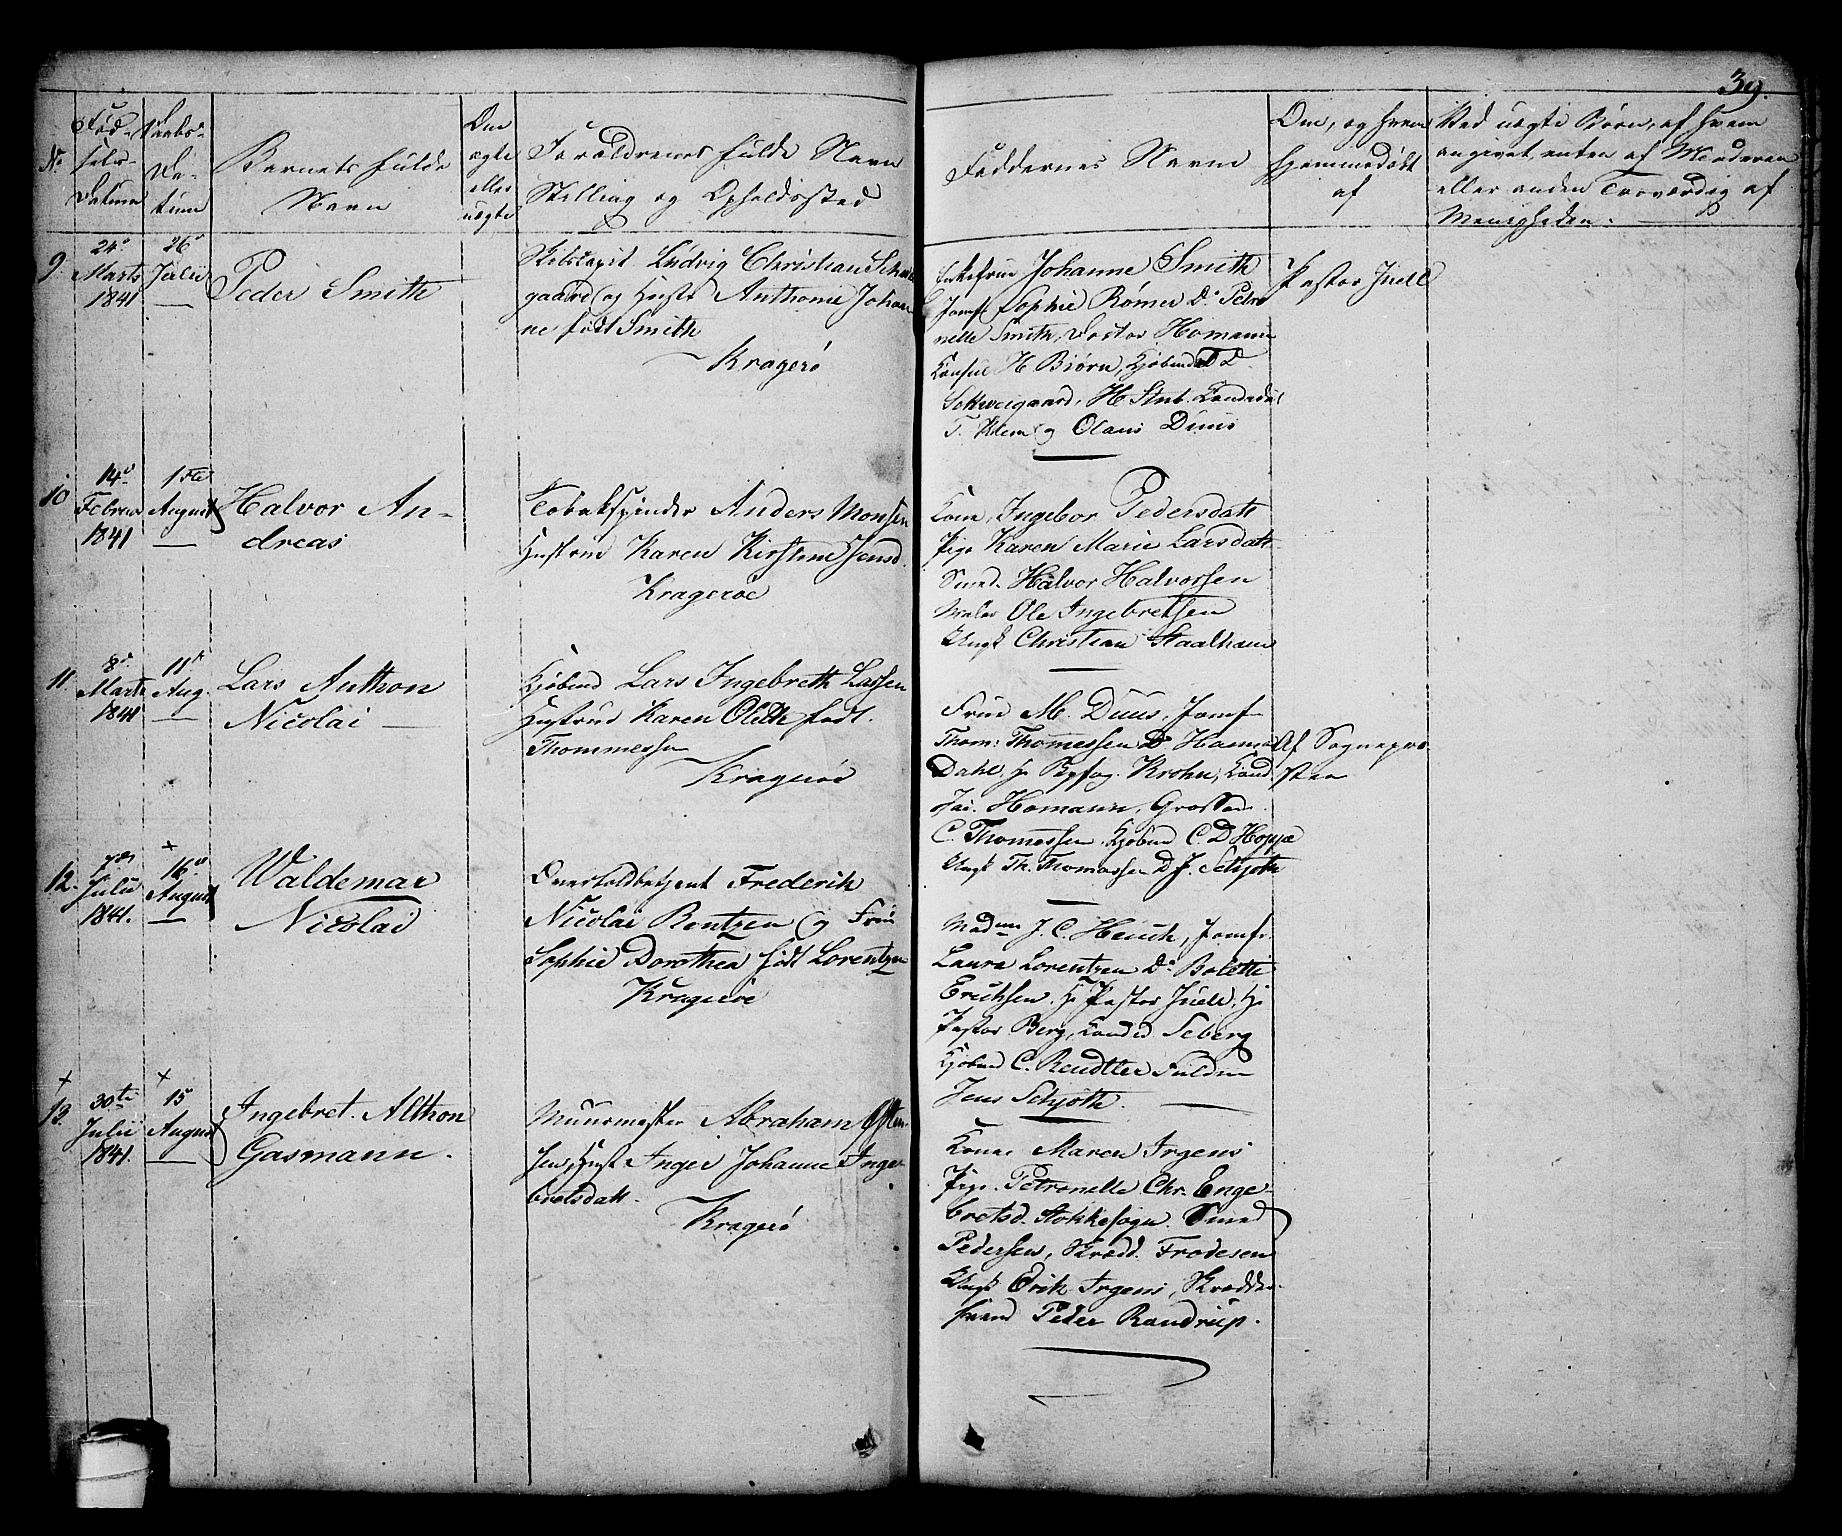 39.
No
Fød-
sels-
Datum
Daabs-
Da-
tum
Barnets fulde
Navn
Om
ægte
eller
uægte
Forældrenes fulde Navn
Stilling og Opholdssted
Faddernes Navne
Om, og hvem
hjemmedøbt
af
Ved uægte Børn, af hvem
angivet, enten af Moderen
eller anden Troværdig af
Menigheden.
9.
24de
Marts
1841
26de
Julii
Peder Smith
Skibscapit Ludvig Christian Schwei
gaard og Hustr Anthonie Johan
ne født Smith
Kragerø
Enkefrue Johanne Smith
Jomf Sophie Rømer Do Petro
nelle Smith, Doctor Homann
Consul H Biørn, Kjøbmd D
Schweigaard, H Stub. Candidat
T. Klem og Olaus Duus
Pastor Juell
10
14de
Februar
1841
1ste
August
Halvor An-
dreas
Tobakspinder Anders Monsen
Hustrue Karen Kirstine Jensd.
Kragerøe
Kone, Ingebor Pedersdatt
Pige Karen Marie Larsdatt
Smed. Halvor Halvorsen
Maler Ole Ingebretsen
Ungk Christian Staalham
11.
8de
Marts
1841
11te
Aug.
Lars Anthon
Nicolai
Kjøbmd Lars Ingebreth Larsen
Hustrue Karen Olette født.
Thommessen
Kragerøe
Frue M. Duus, Jomf
Thom: Thomessen Do Hanna
Dahl, Hr Byfog. Krohn, Cand
Jur. Homann, Grosser
C. Thomessen. Kjøbmd C. D Hoppe
Ungk Th. Thomassen D J. Schjøth
Af Sognepre
sten
12.
7de
Julii
1841.
16de
August
Waldemar
Nicolai
Overtoldbetjent Frederik
Nicolai Bentzen og Frue
Sophie Dorothea født Lorentzen
Kragerøe
Madme J. C. Heuch, Jomfr.
Laura Lorentzen Do Bolette
Erichsen. Hr Pastor Juell, Hr
Pastor Berg, Candid Seberg
Kjøbmd C. Rendtler
Jens Schjøth.
13.
30te
Julii
1841.
15
August
Ingebret. Althon
Gasmann.
Muurmester Abraham Osten
sen, Hust Inger Johanne Inge-
bretsdatt.
Kragerø
Konne Maren Irgens
Pige. Petronelle Chr. Enge-
bretsd. Stokkesogn. Smed
Pedersen, Skrædd. Frodesen
Ungk Erik Irgens, Skrædder
svend Peder Randrup.